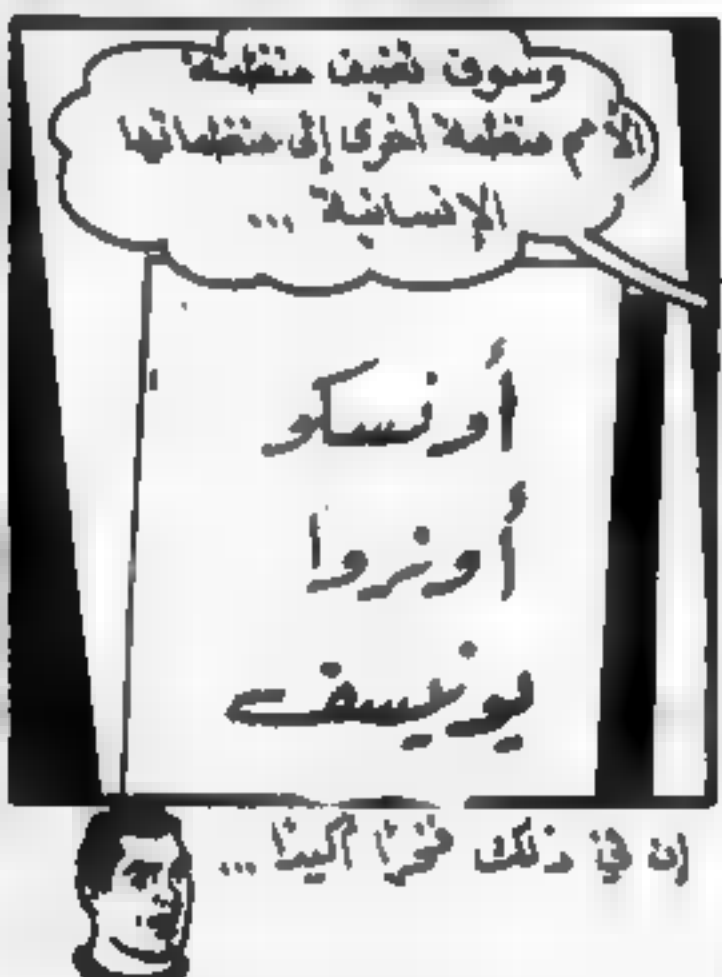 وسوف تضيف منظمة
الأمم منظمة أخرى إلى منظماتها
الإنسانية ...
أونسكو
أونروا
يونيسف
إن في ذلك فخرًا أكيدًا ...